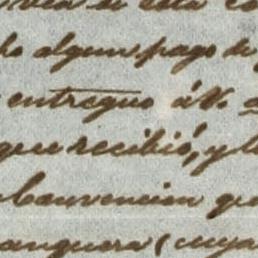 de esta
algun pago de
entregue á V. a
que recibió, y l
Convencion qu
anguera (cuya